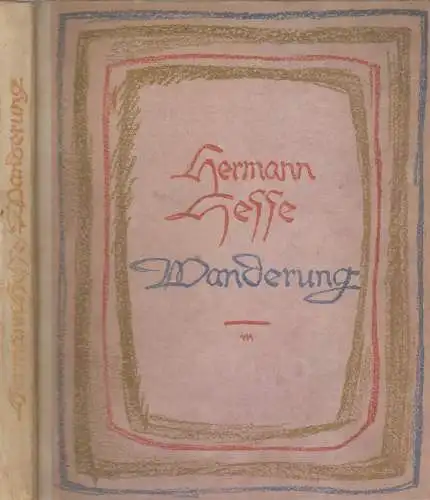 Hermann
Hesse
Wanderung
Hermann Hesse Wanderung